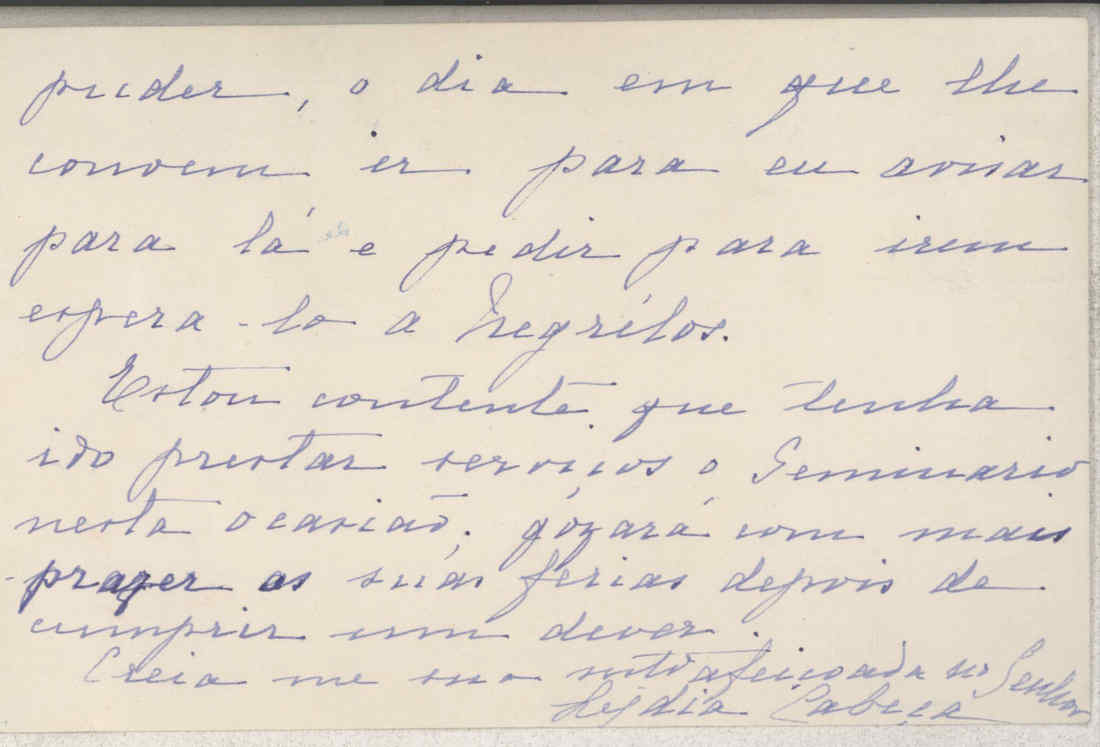 puder, o dia em que lhe
convem ir para eu avisar
para lá e pedir para irem
espera-lo a Negrélos.
Estou contente que tenha
ido prestar serviços o Seminario
nesta ocasião; gózará com mais
prazer as suas ferias depois de
cumprir um dever.
Creia me sua mtº afeiçoada no Senhor
Lydia Cabeça